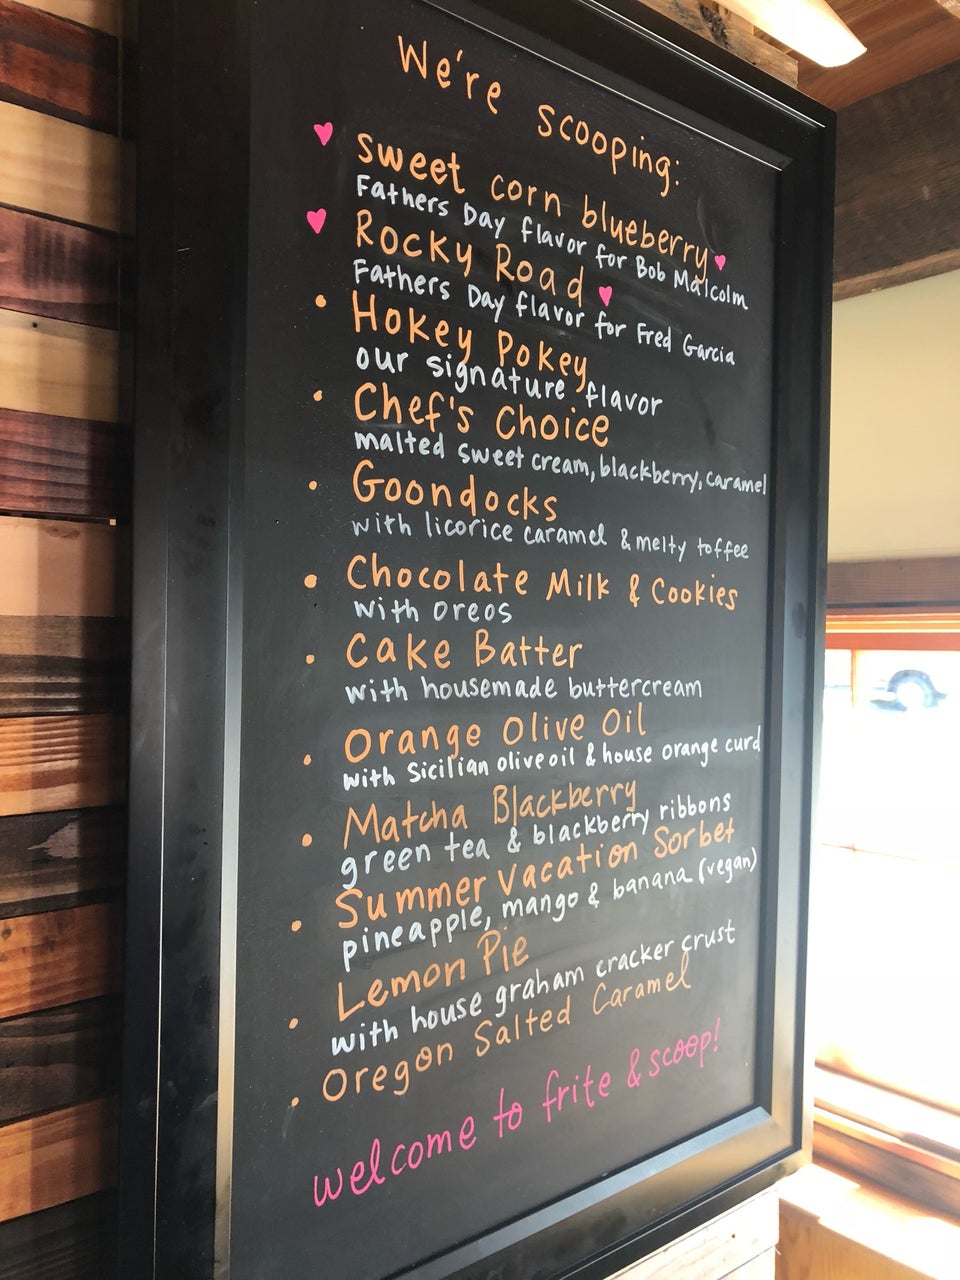 We're scooping:
sweet corn blueberry
Fathers Day flavor for Bob Malcolm
Rocky Road
Fathers Day flavor for Fred Garcia
Hokey Pokey
our signature flavor
Chef's Choice
malted sweet cream, blackberry, caramel
Goondocks
with licorice caramel & melty toffee
Chocolate Milk & Cookies
with oreos
Cake Batter
with housemade buttercream
Orange Olive Oil
with Sicilian olive oil & house orange curd
Matcha Blackberry
green tea & blackberry ribbons
Summer Vacation Sorbet
pineapple, mango & banana (vegan)
Lemon Pie
with house graham cracker crust
Oregon Salted Caramel
welcome to frite & scoop!